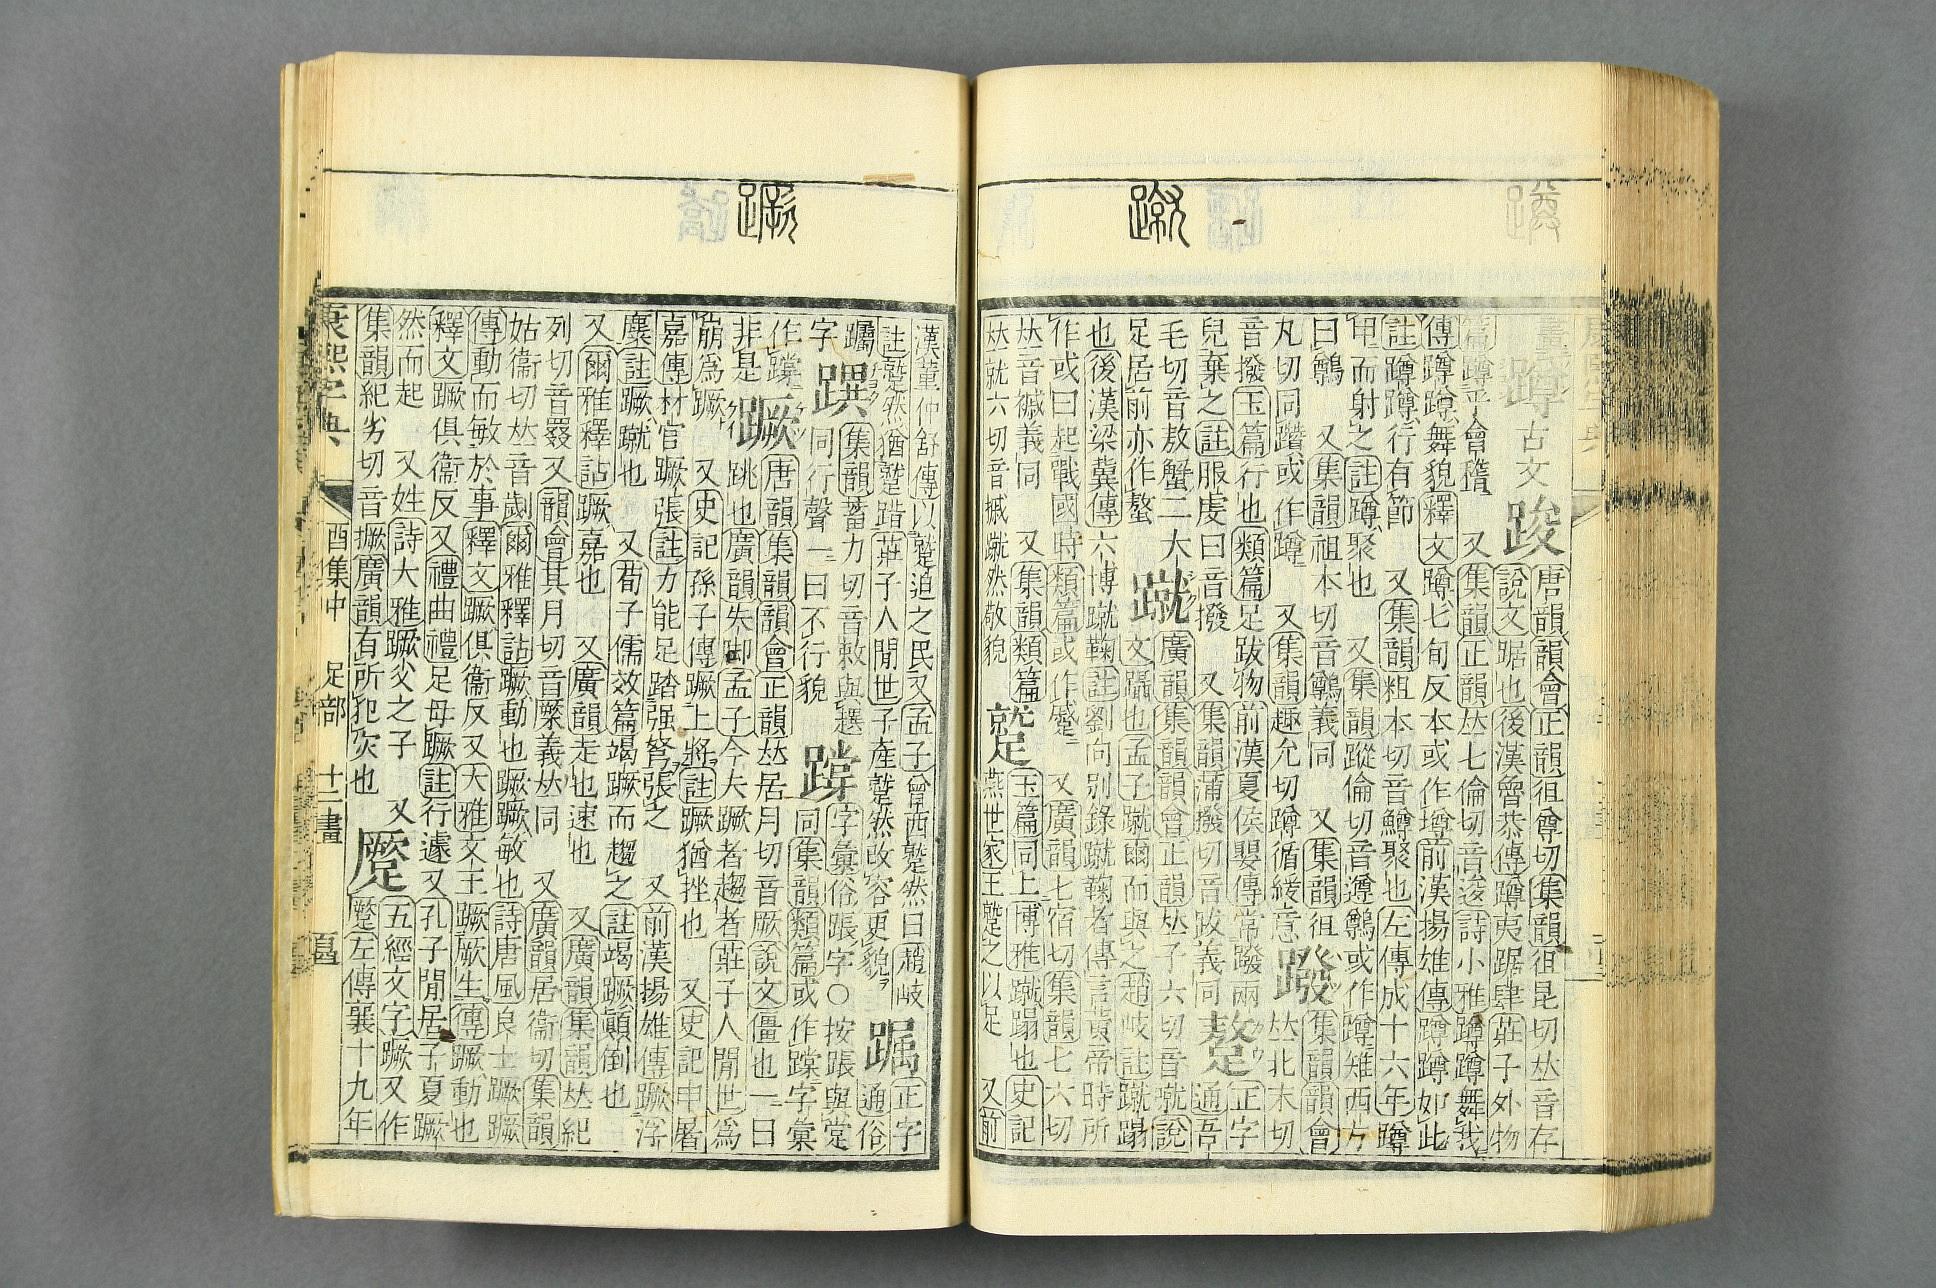 畫
蹲 古文 踆 唐韻韻會正韻徂尊切集韻徂昆切𠀤音存
說文踞也後漢魯恭傳蹲夷踞肆莊子外物
篇蹲乎會稽 又集韻正韻𠀤七倫切音逡詩小雅蹲蹲舞我
傳蹲蹲舞貌釋文蹲七旬反本或作墫前漢揚雄傳蹲蹲如此
註蹲蹲行有節 又集韻粗本切音鱒聚也左傳成十六年蹲
甲而射之註蹲聚也 又集韻蹤倫切音遵鷷或作蹲雉西方
曰鷷 又集韻祖本切音鷷義同 又集韻徂
丸切同躦或作蹲 又集韻趣允切蹲循緩意
蹳 集韻韻會
𠀤北末切
音撥玉篇行也類篇足跋物前漢夏侯嬰傳常蹳兩
兒棄之註服虔曰音撥 又集韻蒲撥切音跋義同
正字
通吾
毛切音敖蟹二大
足居前亦作螯
蹴 廣韻集韻韻會正韻𠀤子六切音蹵說
文躡也孟子蹴爾而與之趙岐註蹴蹋
也後漢梁冀傳六博蹴鞠註劉向別錄蹴鞠者傳言黃帝時所
作或曰起戰國時類篇或作蹵 又廣韻七宿切集韻七六切
𠀤音義同 又集韻類篇
𠀤就六切音摵蹴然敬貌
蹵 玉篇同上博雅蹴蹋也史記
燕世家王蹵之以足 又前
蹴
漢董仲舒傳以蹵迫之民又孟子曾西蹵然曰趙岐
註蹵然猶蹵踖莊子人閒世子產蹵然改容更貌
正字
通俗
躅
字
集韻蓄力切音敕與
同行聲一曰不行貌
字彙俗䟫字〇按䟫與堂
同集韻類篇或作字彙
作
非是
蹶 唐韻集韻韻會正韻𠀤居月切音厥說文僵也一曰
跳也廣韻失脚孟子今夫蹶者趨者莊子人閒世爲
崩爲蹶 又史記孫子傳蹶上將註蹶猶挫也 又史記申屠
嘉傳材官蹶張註力能足踏强弩張之 又前漢揚雄傳蹶浮
麋註蹶蹴也 又荀子儒效篇竭蹶而趨之註竭蹶顚倒也
又爾雅釋詁蹶嘉也 又廣韻走也速也 又廣韻集韻𠀤紀
列切音 又韻會其月切音橜義𠀤同 又廣韻居衞切集韻
姑衞切𠀤音劌爾雅釋詁蹶動也蹶蹶敏也詩唐風良士蹶蹶
傳動而敏於事釋文蹶俱衞反又大雅文王蹶厥生傳蹶動也
釋文蹶俱衞反又禮曲禮足毋蹶註行遽又孔子閒居子夏蹶
然而起 又姓詩大雅蹶父之子 又
集韻紀劣切音撅廣韻有所犯災也
蹷 五經文字蹶又作
蹷左傳襄十九年
蹶
康熙字典 酉集中 足部 十二畫